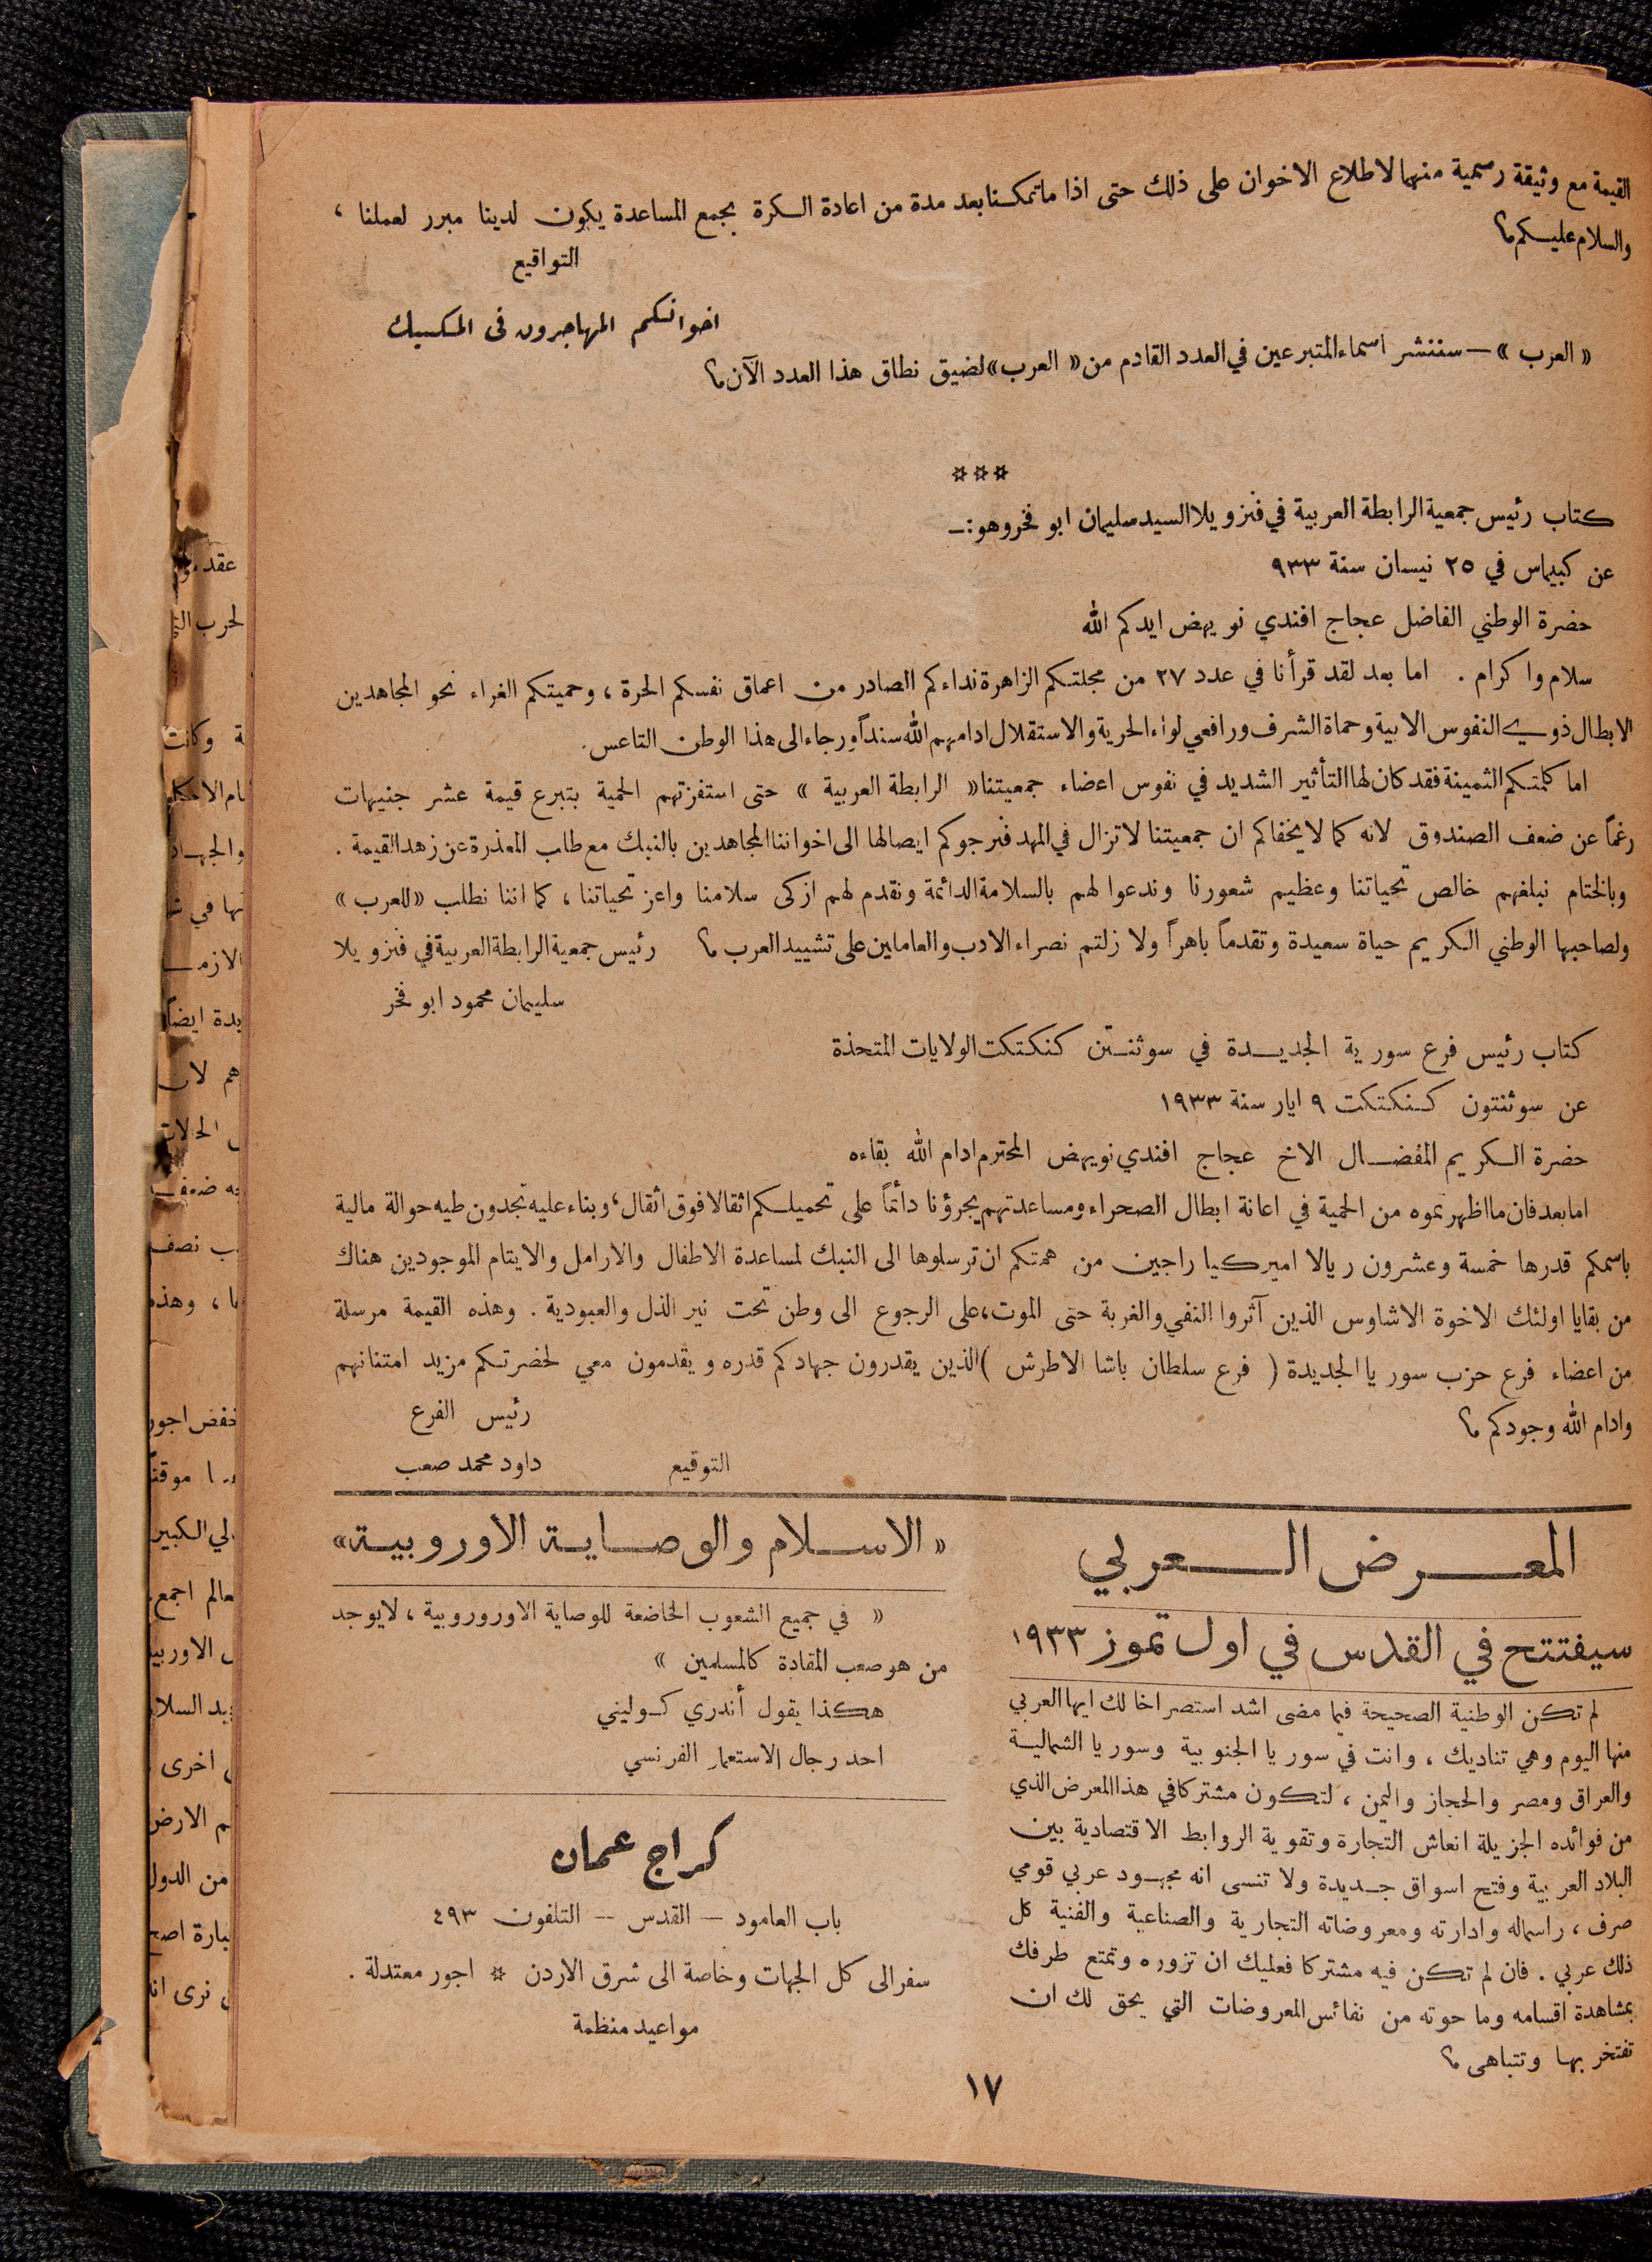 القيمة مع وثيقة رسمية منهما لاطلاع الاخوان على ذلك حتى اذا ما تمكنا بعد مدة من اعادة الكرة بجمع المساعدة يكون لدينا مبرر لعملنا ،
والسلام عليكم ؟
التواقيع
اخوانكم المهاجرون فى المكسيك
« العرب » — سننشر اسماء المتبرعين في العدد القادم من « العرب » لضيق نطاق هذا العدد الآن ؟
***
كتاب رئيس جمعية الرابطة العربية في فنزويلا السيد سليمان ابو فخر وهو : —
عن كبيماس في ٢٥ نيسان سنة ٩٣٣
حضرة الوطني الفاضل عجاج افندي نويهض ايدكم الله
سلام واكرام . اما بعد لقد قرأنا في عدد ٢٧ من مجلتكم الزاهرة نداءكم الصادر من اعماق نفسكم الحرة ، وحميتكم الغراء نحو المجاهدين
الابطال ذوي النفوس الابية وحماة الشرف ورافعي لواء الحرية والاستقلال ادامهم الله سنداً ورجاء الى هذا الوطن التاعس .
اما كلمتكم الثمينة فقد كان لها التأثير الشديد في نفوس اعضاء جمعيتنا « الرابطة العربية » حتى استفزتهم الحمية بتبرع قيمة عشر جنيهات
رغماً عن ضعف الصندوق لانه كما لا يخفاكم ان جمعيتنا لا تزال في المهد فنرجوكم ايصالها الى اخواننا المجاهدين بالنبك مع طلب المعذرة عن زهد القيمة .
وبالختام نبلغهم خالص تحياتنا وعظيم شعورنا وندعوا لهم بالسلامة الدائمة ونقدم لهم ازكى سلامنا واعز تحياتنا ، كما اننا نطلب « للعرب »
ولصاحبها الوطني الكريم حياة سعيدة وتقدماً باهراً ولا زلتم نصراء الادب والعاملين على تشييد العرب ؟ رئيس جمعية الرابطة العربية في فنزويلا
سليمان محمود ابو فخر
كتاب رئيس فرع سورية الجديدة في سوثنتن كنكتكت الولايات المتحدة
عن سوثنتون كنكتكت ٩ ايار سنة ١٩٣٣
حضرة الكريم المفضال الاخ عجاج افندي نويهض المحترم ادام الله بقاءه
اما بعد فان ما اظهرتموه من الحمية في اعانة ابطال الصحراء ومساعدتهم يجرؤنا دائماً على تحميلكم اثقالا فوق اثقال ، وبناء عليه تجدون طيه حوالة مالية
باسمكم قدرها خمسة وعشرون ريالا اميركيا راجين من همتكم ان ترسلوها الى النبك لمساعدة الاطفال والارامل والايتام الموجودين هناك
من بقايا اولئك الاخوة الاشاوس الذين آثروا النفي والغربة حتى الموت ، على الرجوع الى وطن تحت نير الذل والعبودية . وهذه القيمة مرسلة
من اعضاء فرع حزب سوريا الجديدة ( فرع سلطان باشا الاطرش ) الذين يقدرون جهادكم قدره ويقدمون معي لحضرتكم مزيد امتنانهم
وادام الله وجودكم ؟
رئيس الفرع
التوقيع داود محمد صعب
المعرض العربي
سيفتتح في القدس في اول تموز ١٩٣٣
لم تكن الوطنية الصحيحة فيما مضى اشد استصراخا لك ايها العربي
منها اليوم وهي تناديك ، وانت في سوريا الجنوبية وسوريا الشمالية
والعراق ومصر والحجاز واليمن ، لتكون مشتركا في هذا المعرض الذي
من فوائده الجزيلة انعاش التجارة وتقوية الروابط الاقتصادية بين
البلاد العربية وفتح اسواق جديدة ولا تنسى انه مجهود عربي قومي
صرف ، راسماله وادارته ومعروضاته التجارية والصناعية والفنية كل
ذلك عربي . فان لم تكن فيه مشتركا فعليك ان تزوره وتمتع طرفك
بمشاهدة اقسامه وما حوته من نفائس المعروضات التي يحق لك ان
تفتخر بها وتتباهى ؟
« الاسلام والوصاية الاوروبية »
« في جميع الشعوب الخاضعة للوصاية الاوروروبية ، لا يوجد
من هو صعب المقادة كالمسلمين »
هكذا يقول أندري كوليني
احد رجال الاستعمار الفرنسي
كراج عمان
باب العامود — القدس — التلفون ٤٩٣
سفر الى كل الجهات وخاصة الى شرق الاردن * اجور معتدلة .
مواعيد منظمة
١٧